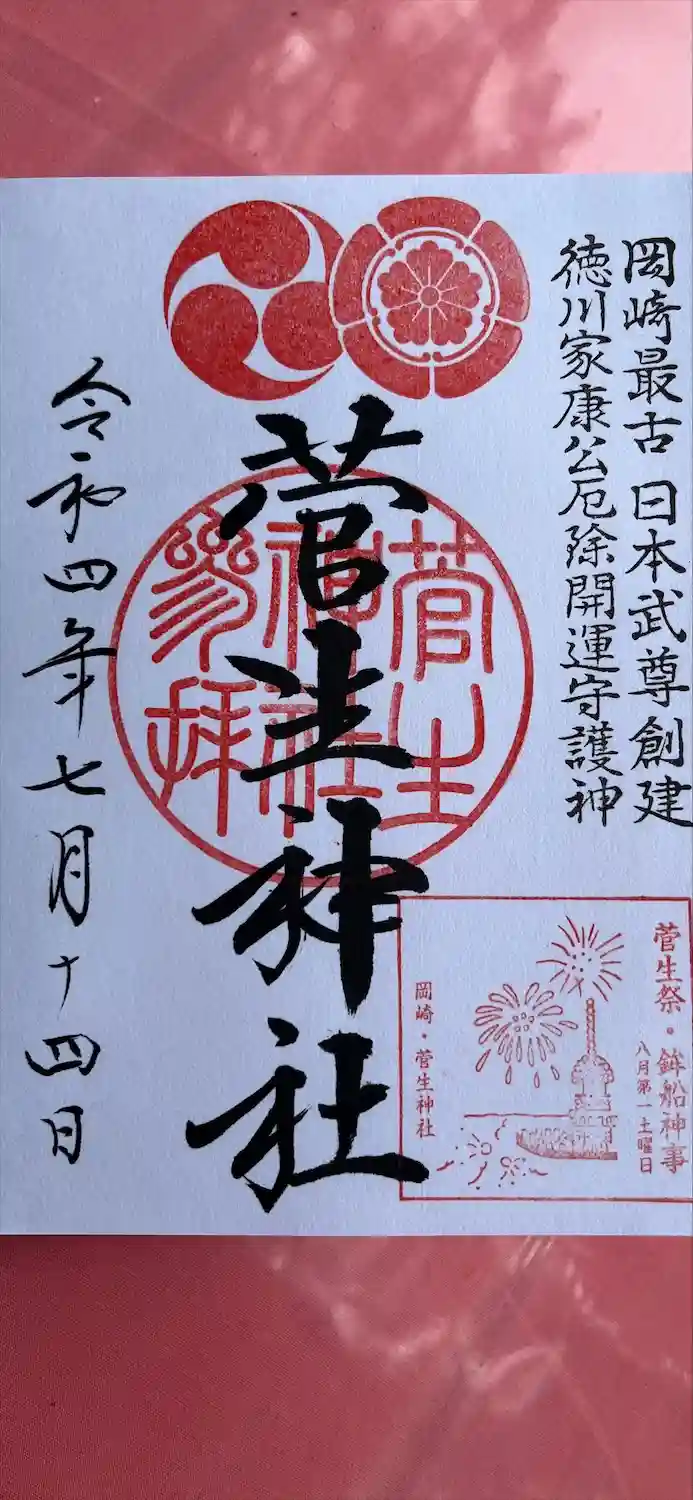 岡崎最古 日本武尊創建
徳川家康公厄除開運守護神
菅生神社
菅生
神社
参拝
菅生祭・鉾船神事
八月第一土曜日
岡崎・菅生神社
令和四年七月十四日